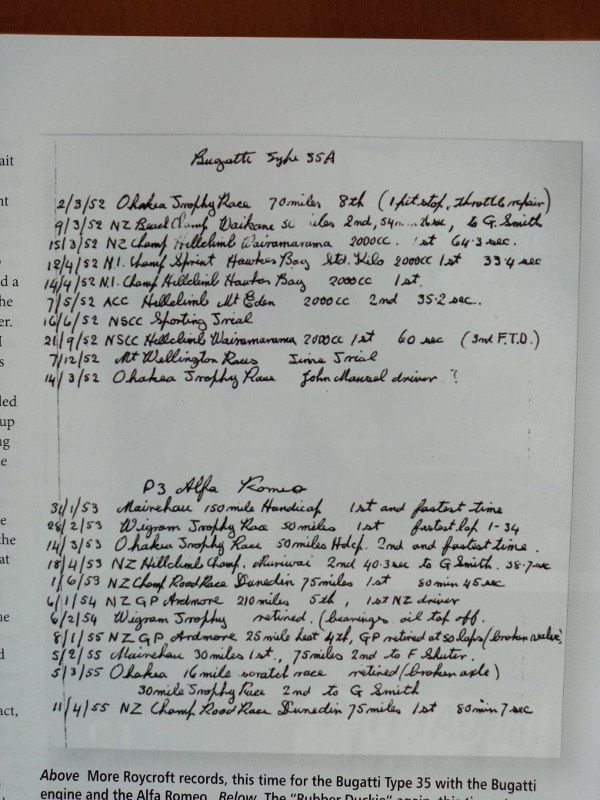 Bugatti Type 35A
2/3/52 Ohakea Trophy Race 70 miles 8th (1 pit stop, throttle repair)
9/3/52 NZ Beach Champ Waikane 2nd, to G. Smith
15/3/52 NZ Champ Hillclimb Wairamarama 2000cc. 1st 64.3 sec.
12/4/52 N.I. Champ Sprint Hawkes Bay Std. Kilo 2000cc 1st 33.4 sec
14/4/52 N.I. Champ Hillclimb Hawkes Bay 2000cc 1st.
7/5/52 ACC Hillclimb Mt Eden 2000cc 2nd 35.2 sec.
16/6/52 NSCC Sporting Trial
21/9/52 NSCC Hillclimb Wairamarama 2000cc 1st 60 sec (3rd F.T.D.)
7/12/52 Mt Wellington Races Time Trial
14/3/52 Ohakea Trophy Race John Mansel driver ?
P3 Alfa Romeo
31/1/53 Mairehau 150 mile Handicap 1st and fastest time
28/2/53 Wigram Trophy Race 50 miles 1st fastest lap 1-34
14/3/53 Ohakea Trophy Race 50 miles Hdcp. 2nd and fastest time.
18/4/53 NZ Hillclimb Champ. Muriwai 2nd 40.3 sec to G Smith. 38.7 sec
1/6/53 NZ Champ Road Race Dunedin 75 miles 1st 80 min 45 sec
6/1/54 NZ GP Ardmore 210 miles 5th, 1st NZ driver
6/2/54 Wigram Trophy retired. (bearings oil top off.
8/1/55 NZ GP Ardmore 25 mile heat 4th, GP retired at 50 laps (broken valve)
5/2/55 Mairehau 30 miles 1st., 75 miles 2nd to F Shuter.
5/3/55 Ohakea 16 mile scratch race retired (broken axle)
30 mile Trophy Race 2nd to G Smith
11/4/55 NZ Champ Road Race Dunedin 75 miles 1st 80 min 7 sec
Above More Roycroft records, this time for the Bugatti Type 35 with the Bugatti
engine and the Alfa Romeo. Below The "Rubber Duckie" again, this time